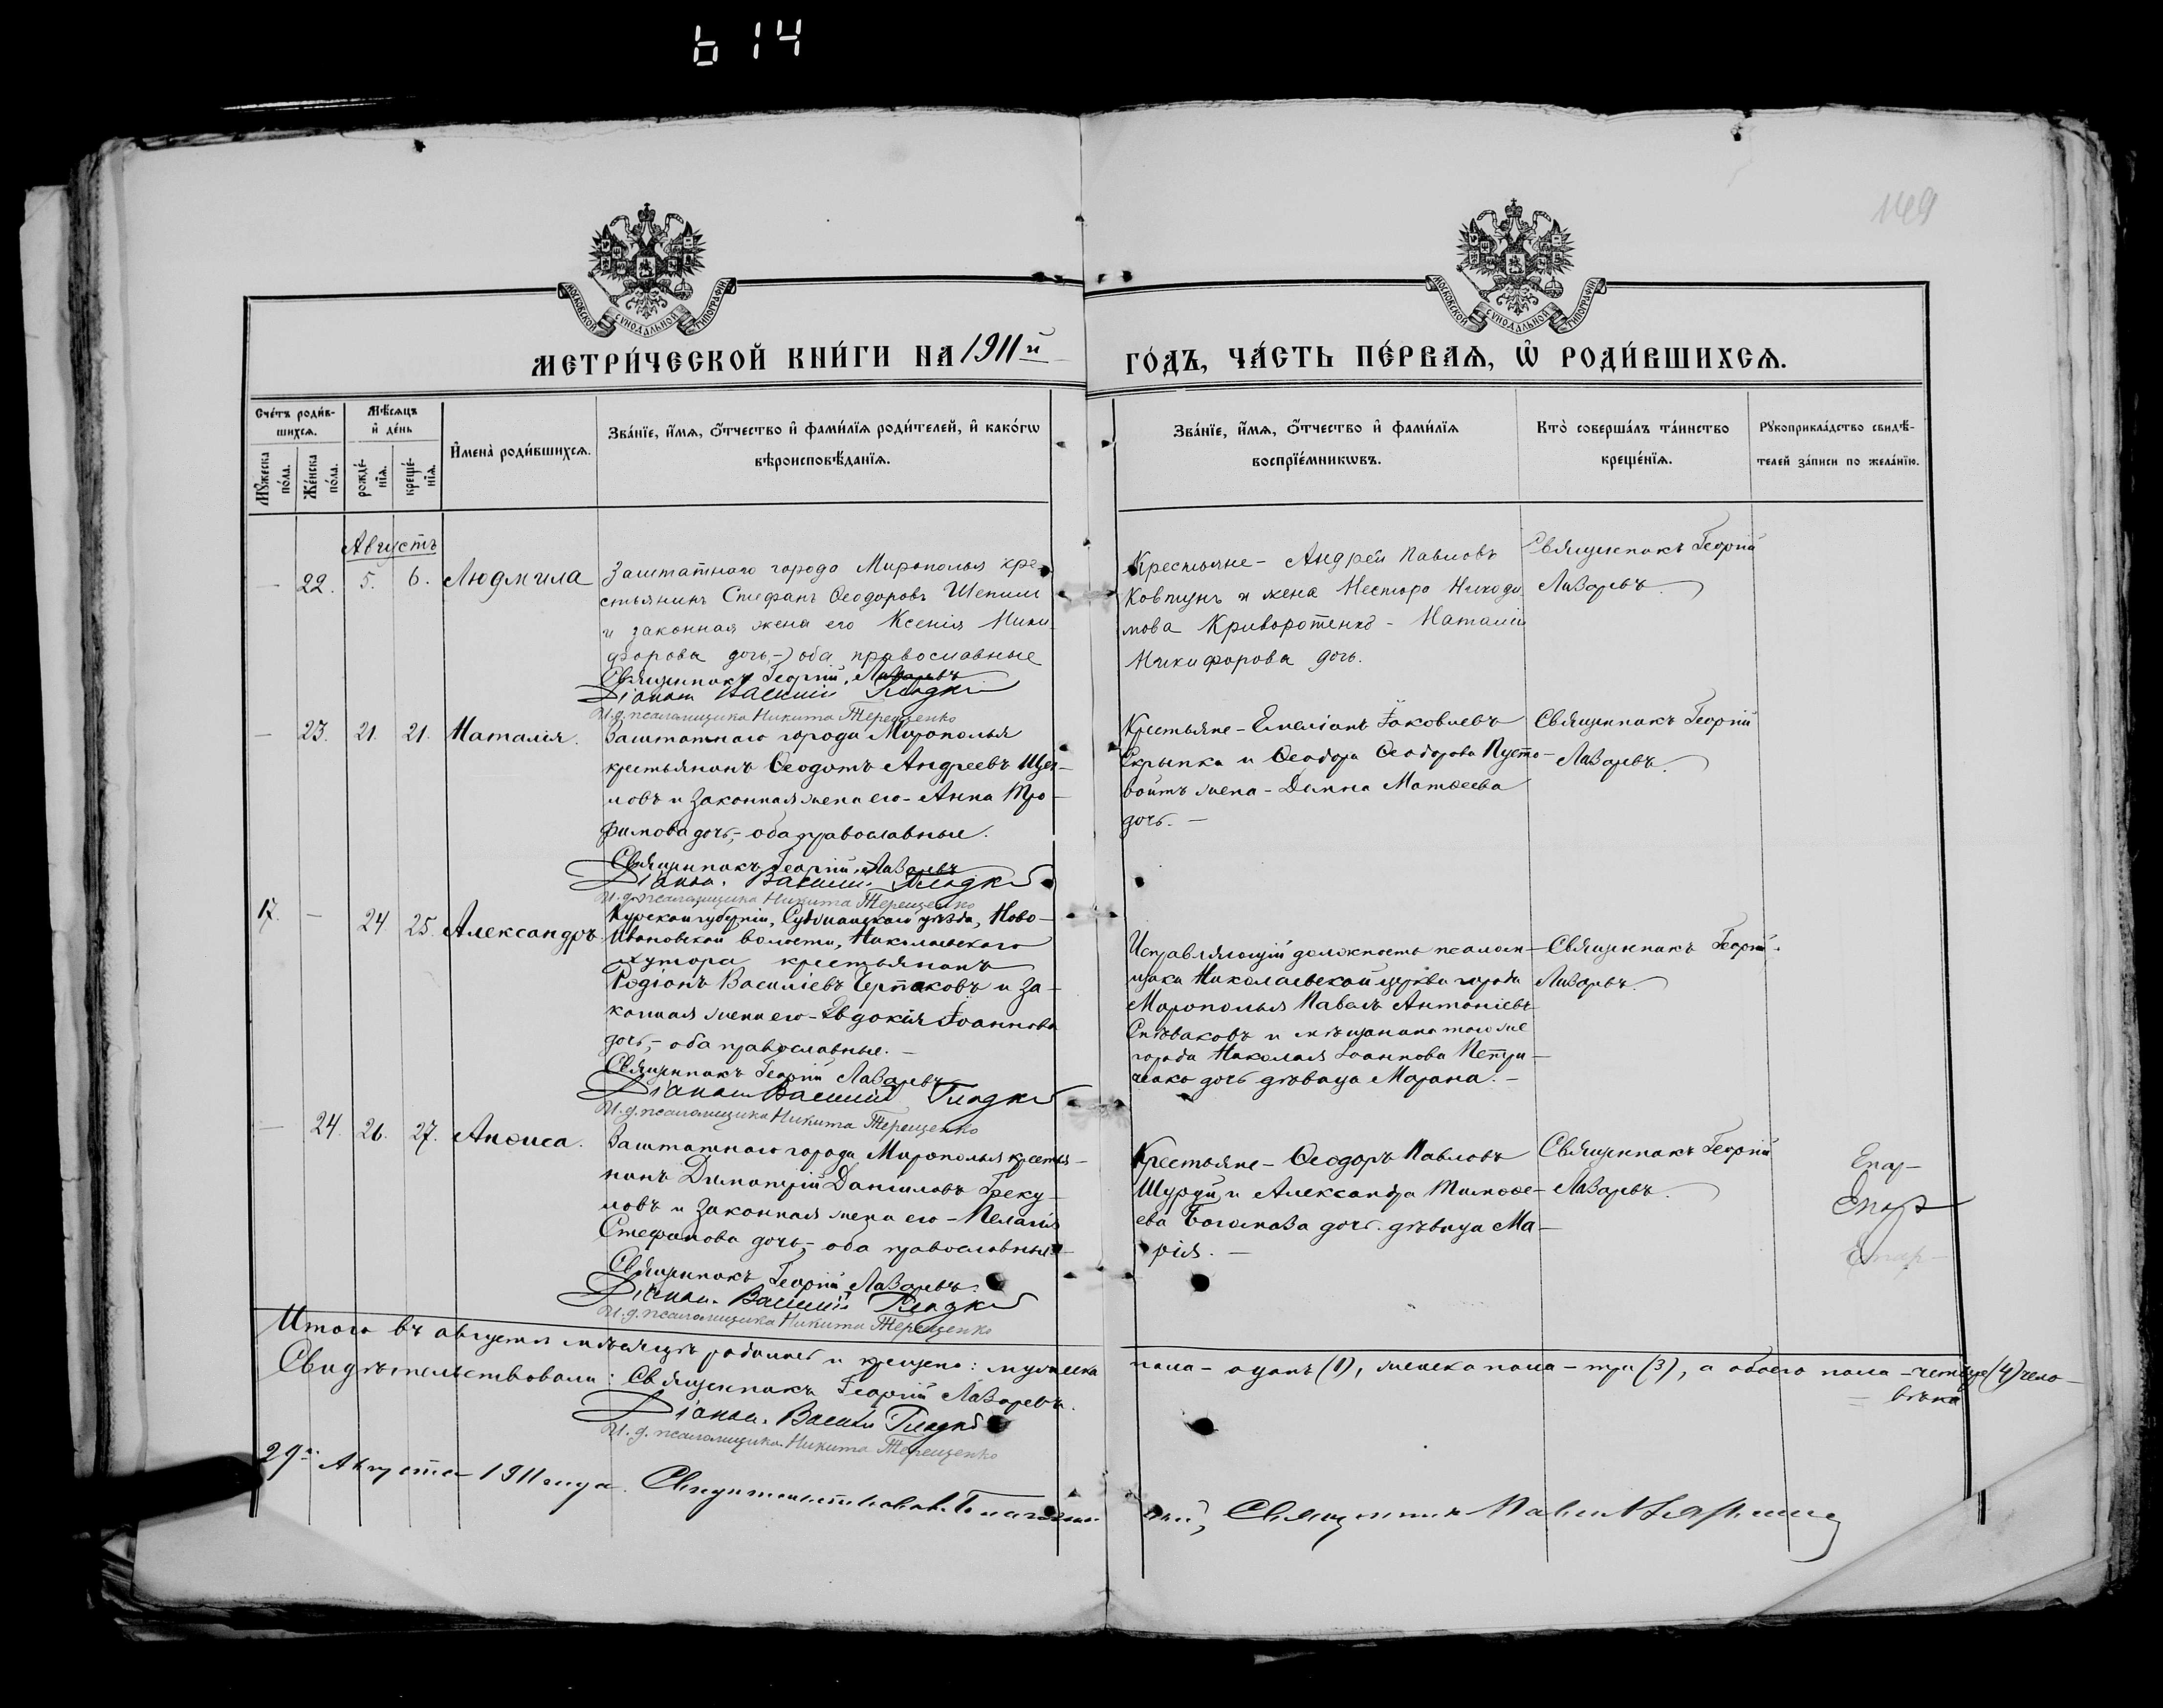 614
149
МОСКОВСКОЙ СѴНОДАЛЬНОЙ ТИПОГРАФІИ
МОСКОВСКОЙ СѴНОДАЛЬНОЙ ТИПОГРАФІИ
МЕТРИ́ЧЕСКОЙ КНИ́ГИ НА 1911 й ГО́ДЪ, ЧА́СТЬ ПЕ́РВАѦ, Ѡ҆ РОДИ́ВШИХСѦ.
Сче́тъ роди́в-
шихсѧ.
Мѹ́жеска по́ла.
Же́нска по́ла.
Мѣ́сѧцъ
и҆ де́нь
рожде́-
нїѧ.
креще́-
нїѧ.
И҆мена̀ роди́вшихсѧ.
Зва́нїе, и҆́мѧ, ѻ҆́тчество и҆ фами́лїѧ роди́телей, и҆ како́гѡ
вѣроисповѣ́данїѧ.
Зва́нїе, и҆́мѧ, ѻ҆́тчество и҆ фами́лїѧ
воспрїе́мникѡвъ.
Кто̀ соверша́лъ та́инство
креще́нїѧ.
Рѹкоприкла́дство свидѣ́-
телей за́писи по жела́нїю.
Августъ
— 22. 5. 6. Людмила
Заштатного города Мирополья кре-
стьянинъ Стефанъ Ѳеодоровъ Шепиль
и законная жена его Ксенія Ники-
форова дочь,-) оба православные
Священникъ Георгій Лазаревъ
Діаконъ Василій Гладкій
И. д. псаломщика Никита Терещенко
Крестьяне - Андрей Павловъ
Ковтунъ и жена Нестора Никоди
мова Криворотенко - Наталія
Никифорова дочь.
Священникъ Георгій
Лазаревъ.
— 23. 21. 21. Наталія.
Заштатного города Мирополья
крестьянинъ Ѳеодотъ Андреевъ Щег-
ловъ и законная жена его - Анна Тро-
фимова дочь,- оба православные.
Священникъ Георгій Лазаревъ
Діаконъ Василій Гладкій
И. д. псаломщика Никита Терещенко
Крестьяне - Емеліанъ Іаковлевъ
Скрыпка и Ѳеодора Ѳеодорова Пусто-
войтъ жена - Домна Матѳеева
дочь. —
Священникъ Георгій
Лазаревъ.
17. — 24. 25. Александръ.
Курской губерніи, Суджанскаго уѣзда, Ново-
Ивановской волости, Николаевскаго
хутора крестьянинъ
Родіонъ Василіевъ Чертаковъ и за-
конная жена его - Евдокія Іоаннова
дочь,- оба православные. —
Священникъ Георгій Лазаревъ
Діаконъ Василій Гладкій
И. д. псаломщика Никита Терещенко
Исправляющій должность псалом-
щика Николаевской церкви города
Мирополья Павелъ Антоніевъ
Спѣваковъ и мѣщанина того же
города Николая Іоаннова Петри-
ченко дочь дѣвица Марина. —
Священникъ Георгій
Лазаревъ.
— 24. 26. 27. Анѳиса.
Заштатного города Мирополья крестья-
нинъ Димитрій Даніиловъ Греку-
ловъ и законная жена его - Пелагія
Стефанова дочь,- оба православные.
Священникъ Георгій Лазаревъ.
Діаконъ Василій Гладкій
И. д. псаломщика Никита Терещенко
Крестьяне - Ѳеодоръ Павловъ
и Александра Тимоѳе-
ева дочь дѣвица Ма-
рія. —
Священникъ Георгій
Лазаревъ.
Епар-
Епар
Епар-
Итого въ августѣ мѣсяцѣ родилось и крещено: мужеска пола - одинъ (1), женска пола - три (3), а обоего пола - четыре (4) чело-
вѣка
Свидѣтельствовали: Священникъ Георгій Лазаревъ.
Діаконъ Василій Гладкій
И. д. псаломщика Никита Терещенко
29го Августа 1911 года. Свидѣтельствовалъ Благочинный, Священникъ Павелъ